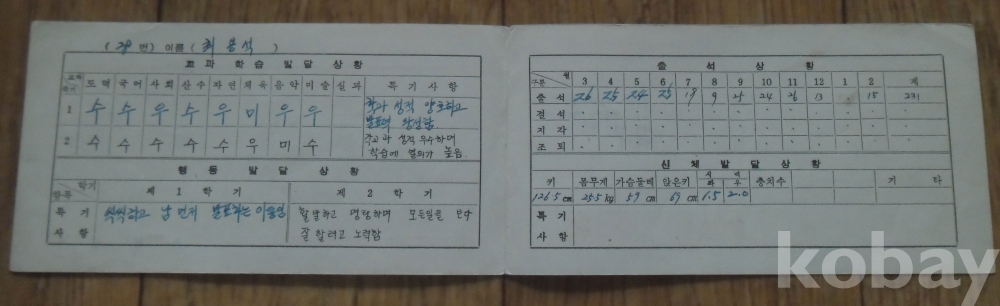 ( 28 번) 이름 ( 최 용 석 )
교 과 학 습 발 달 상 황
교과 학기 도덕 국어 사회 산수 자연 체육 음악 미술 실과 특 기 사 항
1 수 수 우 수 우 미 우 우 학과 성적 양호하고
발표력 왕성함
2 수 수 수 수 수 우 미 수 학교과 성적 우수하며
학습에 열의가 높음
행 동 발 달 상 황
학기 항목 제 1 학 기 제 2 학 기
특 기 사 항 씩씩하고 남 먼저 발표하는 활발하고 명랑하며 모든일을
잘 할려고 노력함
출 석 상 황
월 구분 3 4 5 6 7 8 9 10 11 12 1 2 계
출 석 26 25 24 25 18 9 25 24 26 13 15 231
결 석
지 각
조 퇴
신 체 발 달 상 황
키 몸무게 가슴둘레 앉은키 시 력 좌 우 충치수 기 타
126.5 cm 25.5 kg 59 cm 69 cm 1.5 2.0
특 기
사 항
kobay